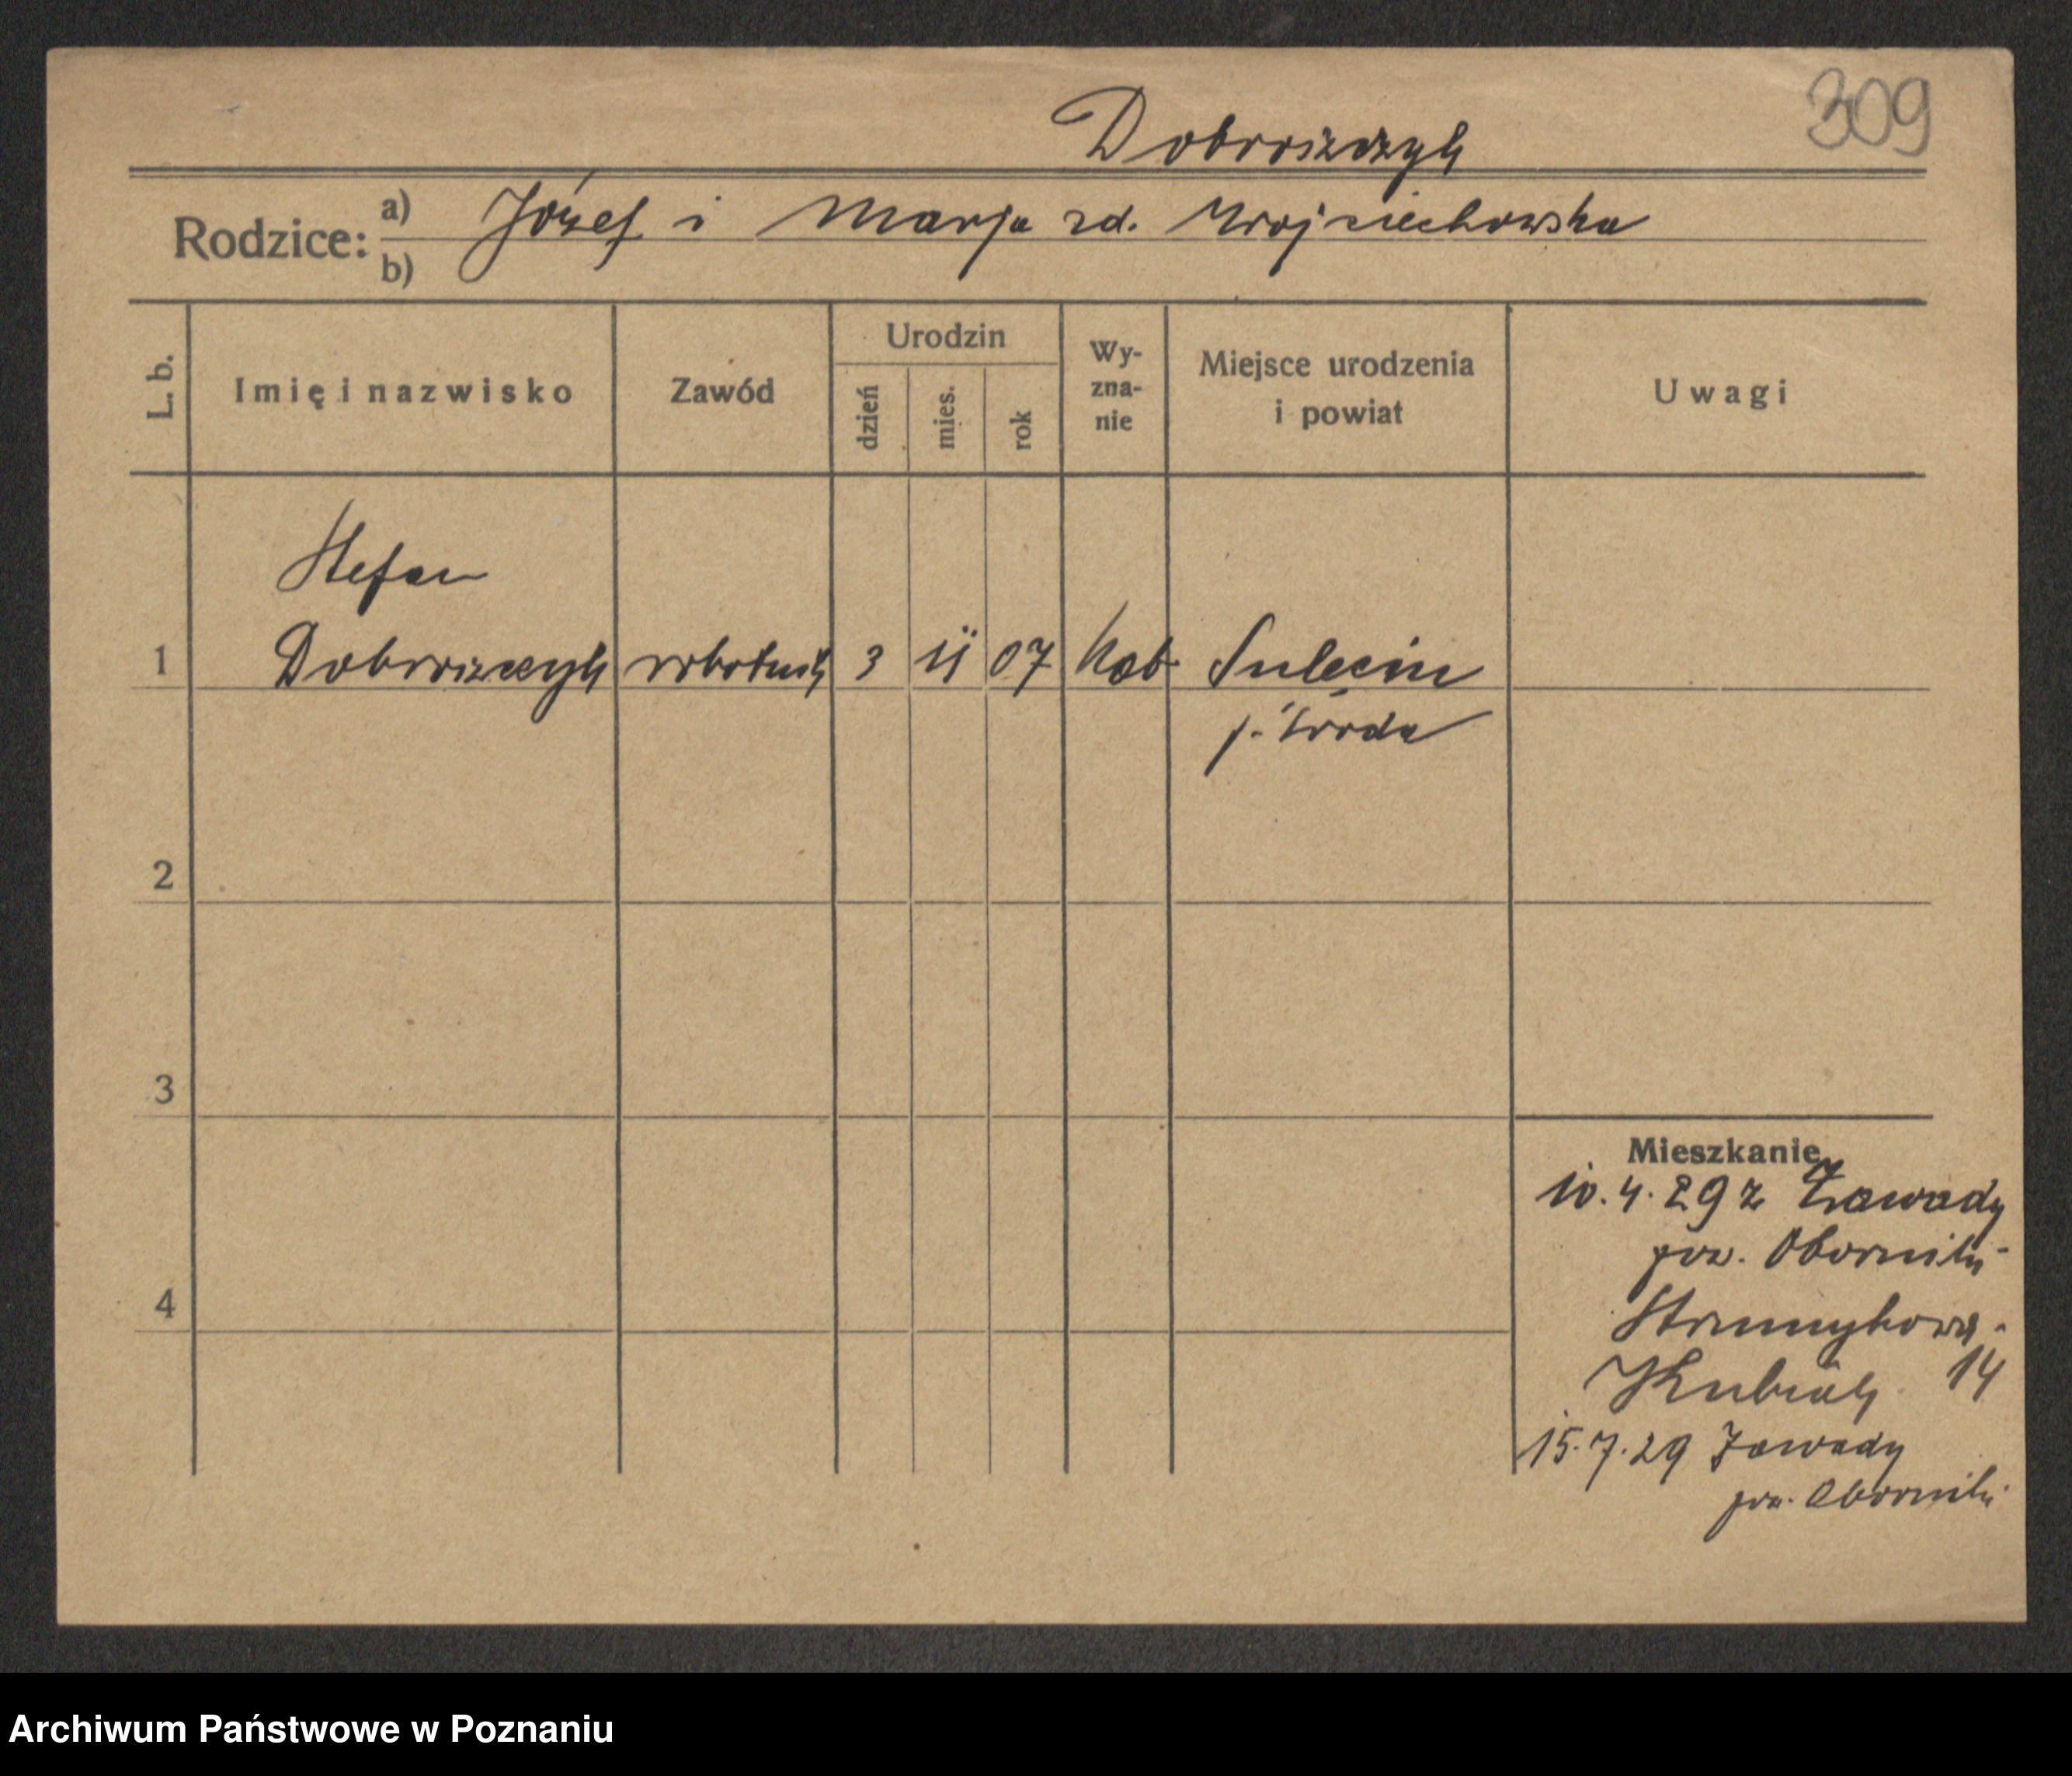 309
Dobroizczyk
Rodzice: a) Józef i Marja zd. Wojciechowska
b)
L. b. Imię i nazwisko Zawód Urodzin dzień mies. rok Wy-zna-nie Miejsce urodzenia i powiat Uwagi
Stefan
1 robotnik 3 11 07 kat Sulęcin
p. Środa
2
3
Mieszkanie
10.4.29 z Zawady
pow. Oborniki
4
Strumykowa
Kubiak 14
15.7.29 Zawady
pow. Oborniki
Archiwum Państwowe w Poznaniu